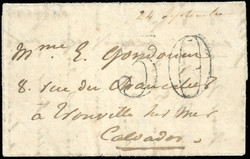 24 septembre
Mme E. Gondouin
30
8. rue du Chancelier
à Trouville sur Mer
Calvados